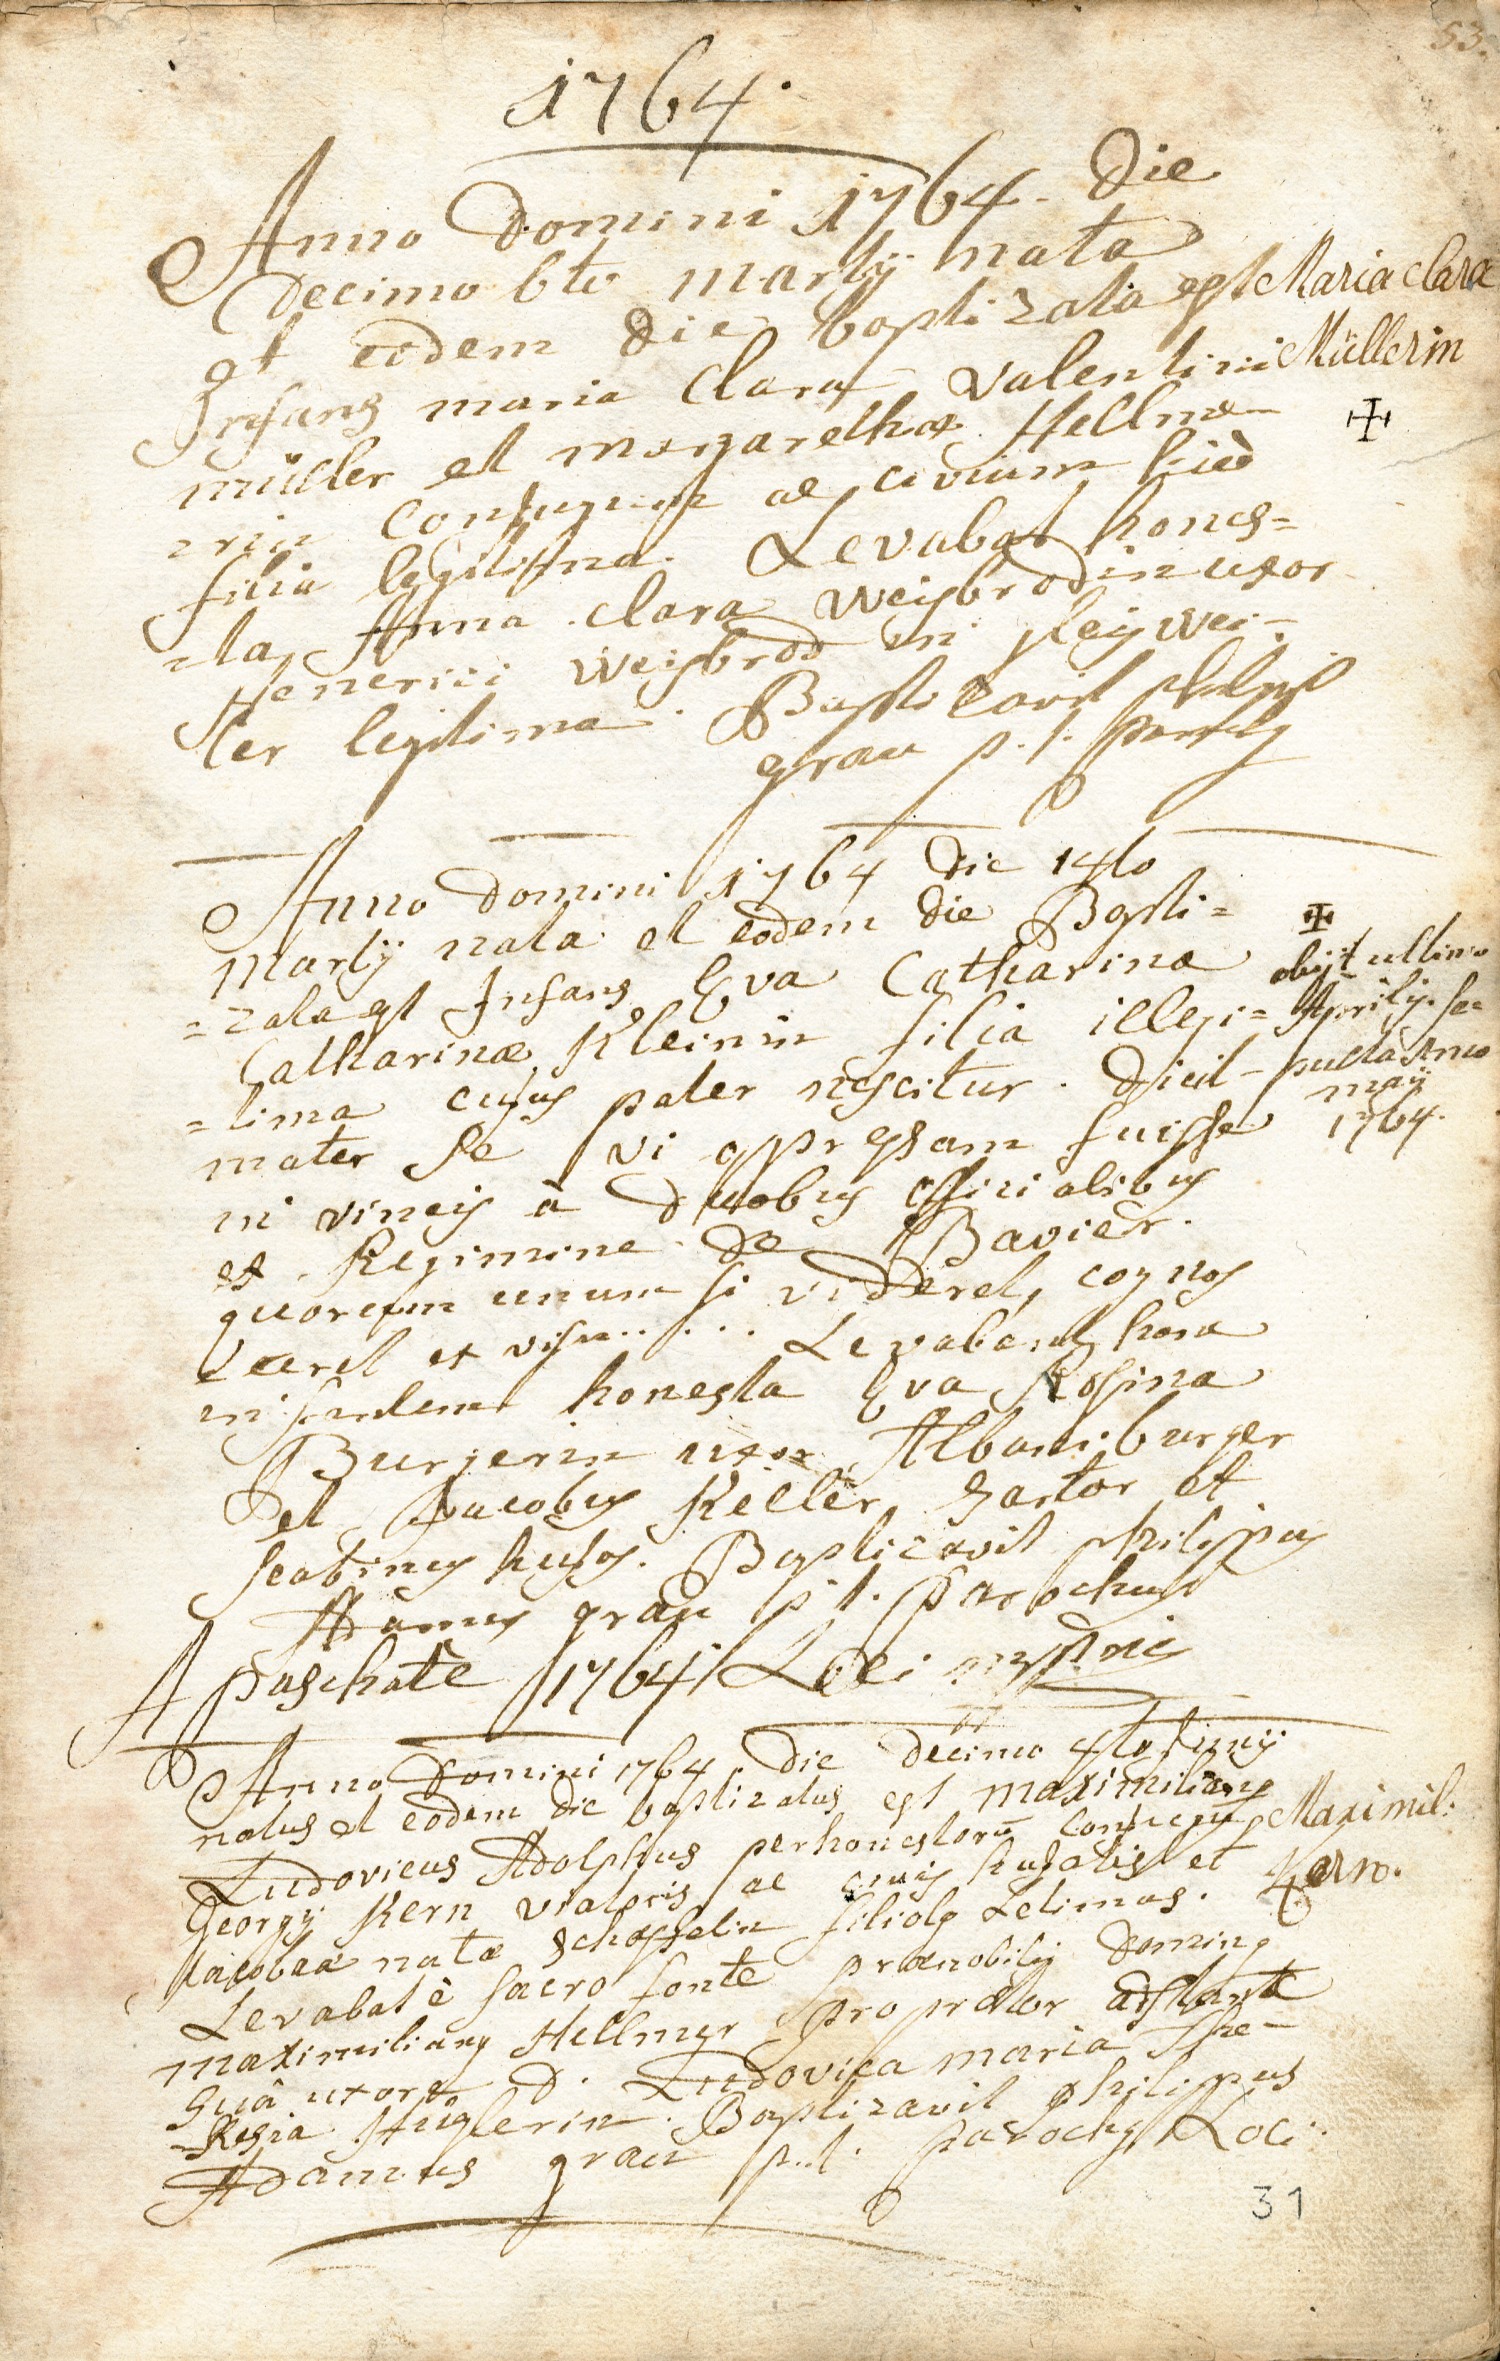 53.
1764.
Anno Domini 1764. Die
Decimo 6to Martij nata
et eodem die baptizata est
Infans maria Clara Valentini
müller et margarethæ Hellme-
=rin Conjugum ac civium hic
filia legitima. Levabat hones=
=ta Anna Clara Weisbrodin uxor
Henerici Weisbrod in
ler legitima. Baptizavit
grau p.t.
Maria Clara
Müllerin
Anno Domini 1764 die 14to
Martij nata et eodem die Bapti=
=zata est Infans Eva Catharina
Catharinæ Kleinin filia illegi=
=tima cujus pater nescitur. Dicit
mater se vi oppressam fuisse
in vineis à duobus officialibus
ex Regimine de Bavier.
quorum unum si videret, cognos
ceret ex visu..... Levabant hanc
infantem honesta Eva Rosina
Burgerin uxor Albani burger
et Jacobus Keller, Sartor et
scabinus hujus. Baptizavit philippus
Adamus grau p.t. Parochus
Loci
obijt ultimo
Aprilis. se=
pulta 2do
maij
1764.
A paschate 1764
Anno Domini 1764. die decimo 4to Junij
natus et eodem die baptizatus est maximilianus
Ludovicus Adolphus perhonestorū Conjugū
Georgij Kern viatoris ac civis hujatis et
Jacobeæ natæ filiolus Letimus.
Levabat è sacro fonte prænobilis Dominus
maximilianus Hellmer proprætor adstante
suâ uxore D. Ludovica maria The-
=Resia Huglerin. Baptizavit philippus
Adamus grau p.t. parochus Loci.
Maximil:
Kern.
31